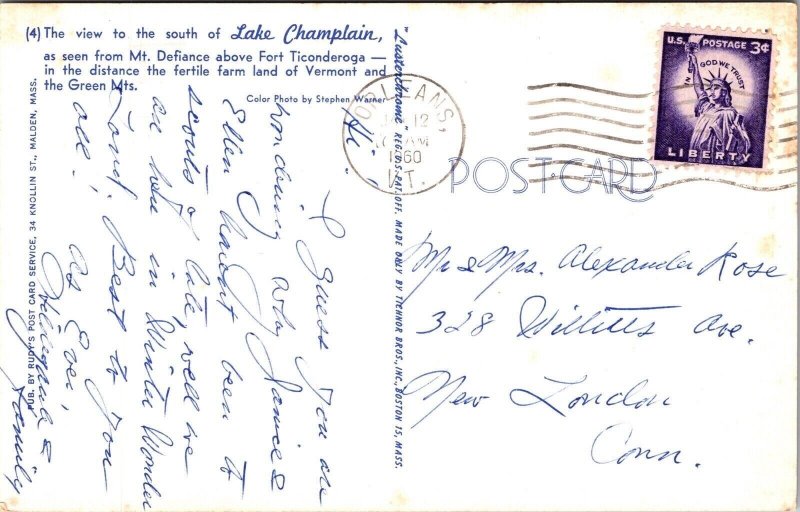 (4) The view to the south of Lake Champlain,
as seen from Mt. Defiance above Fort Ticonderoga —
in the distance the fertile farm land of Vermont and
the Green Mts.
Color Photo by Stephen Warner
PUB. BY RUDY'S POST CARD SERVICE, 34 KNOLLIN ST., MALDEN, MASS.
Hi.
I Guess you are
wondering why Janice &
Ellen havent been to
scouts of late, well we
are here in Winter Wonder
Land. Best to you
all!
As Ever,
&
Family
"Lusterchrome" REG. U.S. PAT. OFF. MADE ONLY BY TICHNOR BROS., INC., BOSTON 15, MASS.
ORLEANS,
12
AM
1960
VT.
U.S. POSTAGE 3¢
IN GOD WE TRUST
LIBERTY
POST CARD
Mr & Mrs. Alexander Rose
328 Willitts Ave.
New London
Conn.